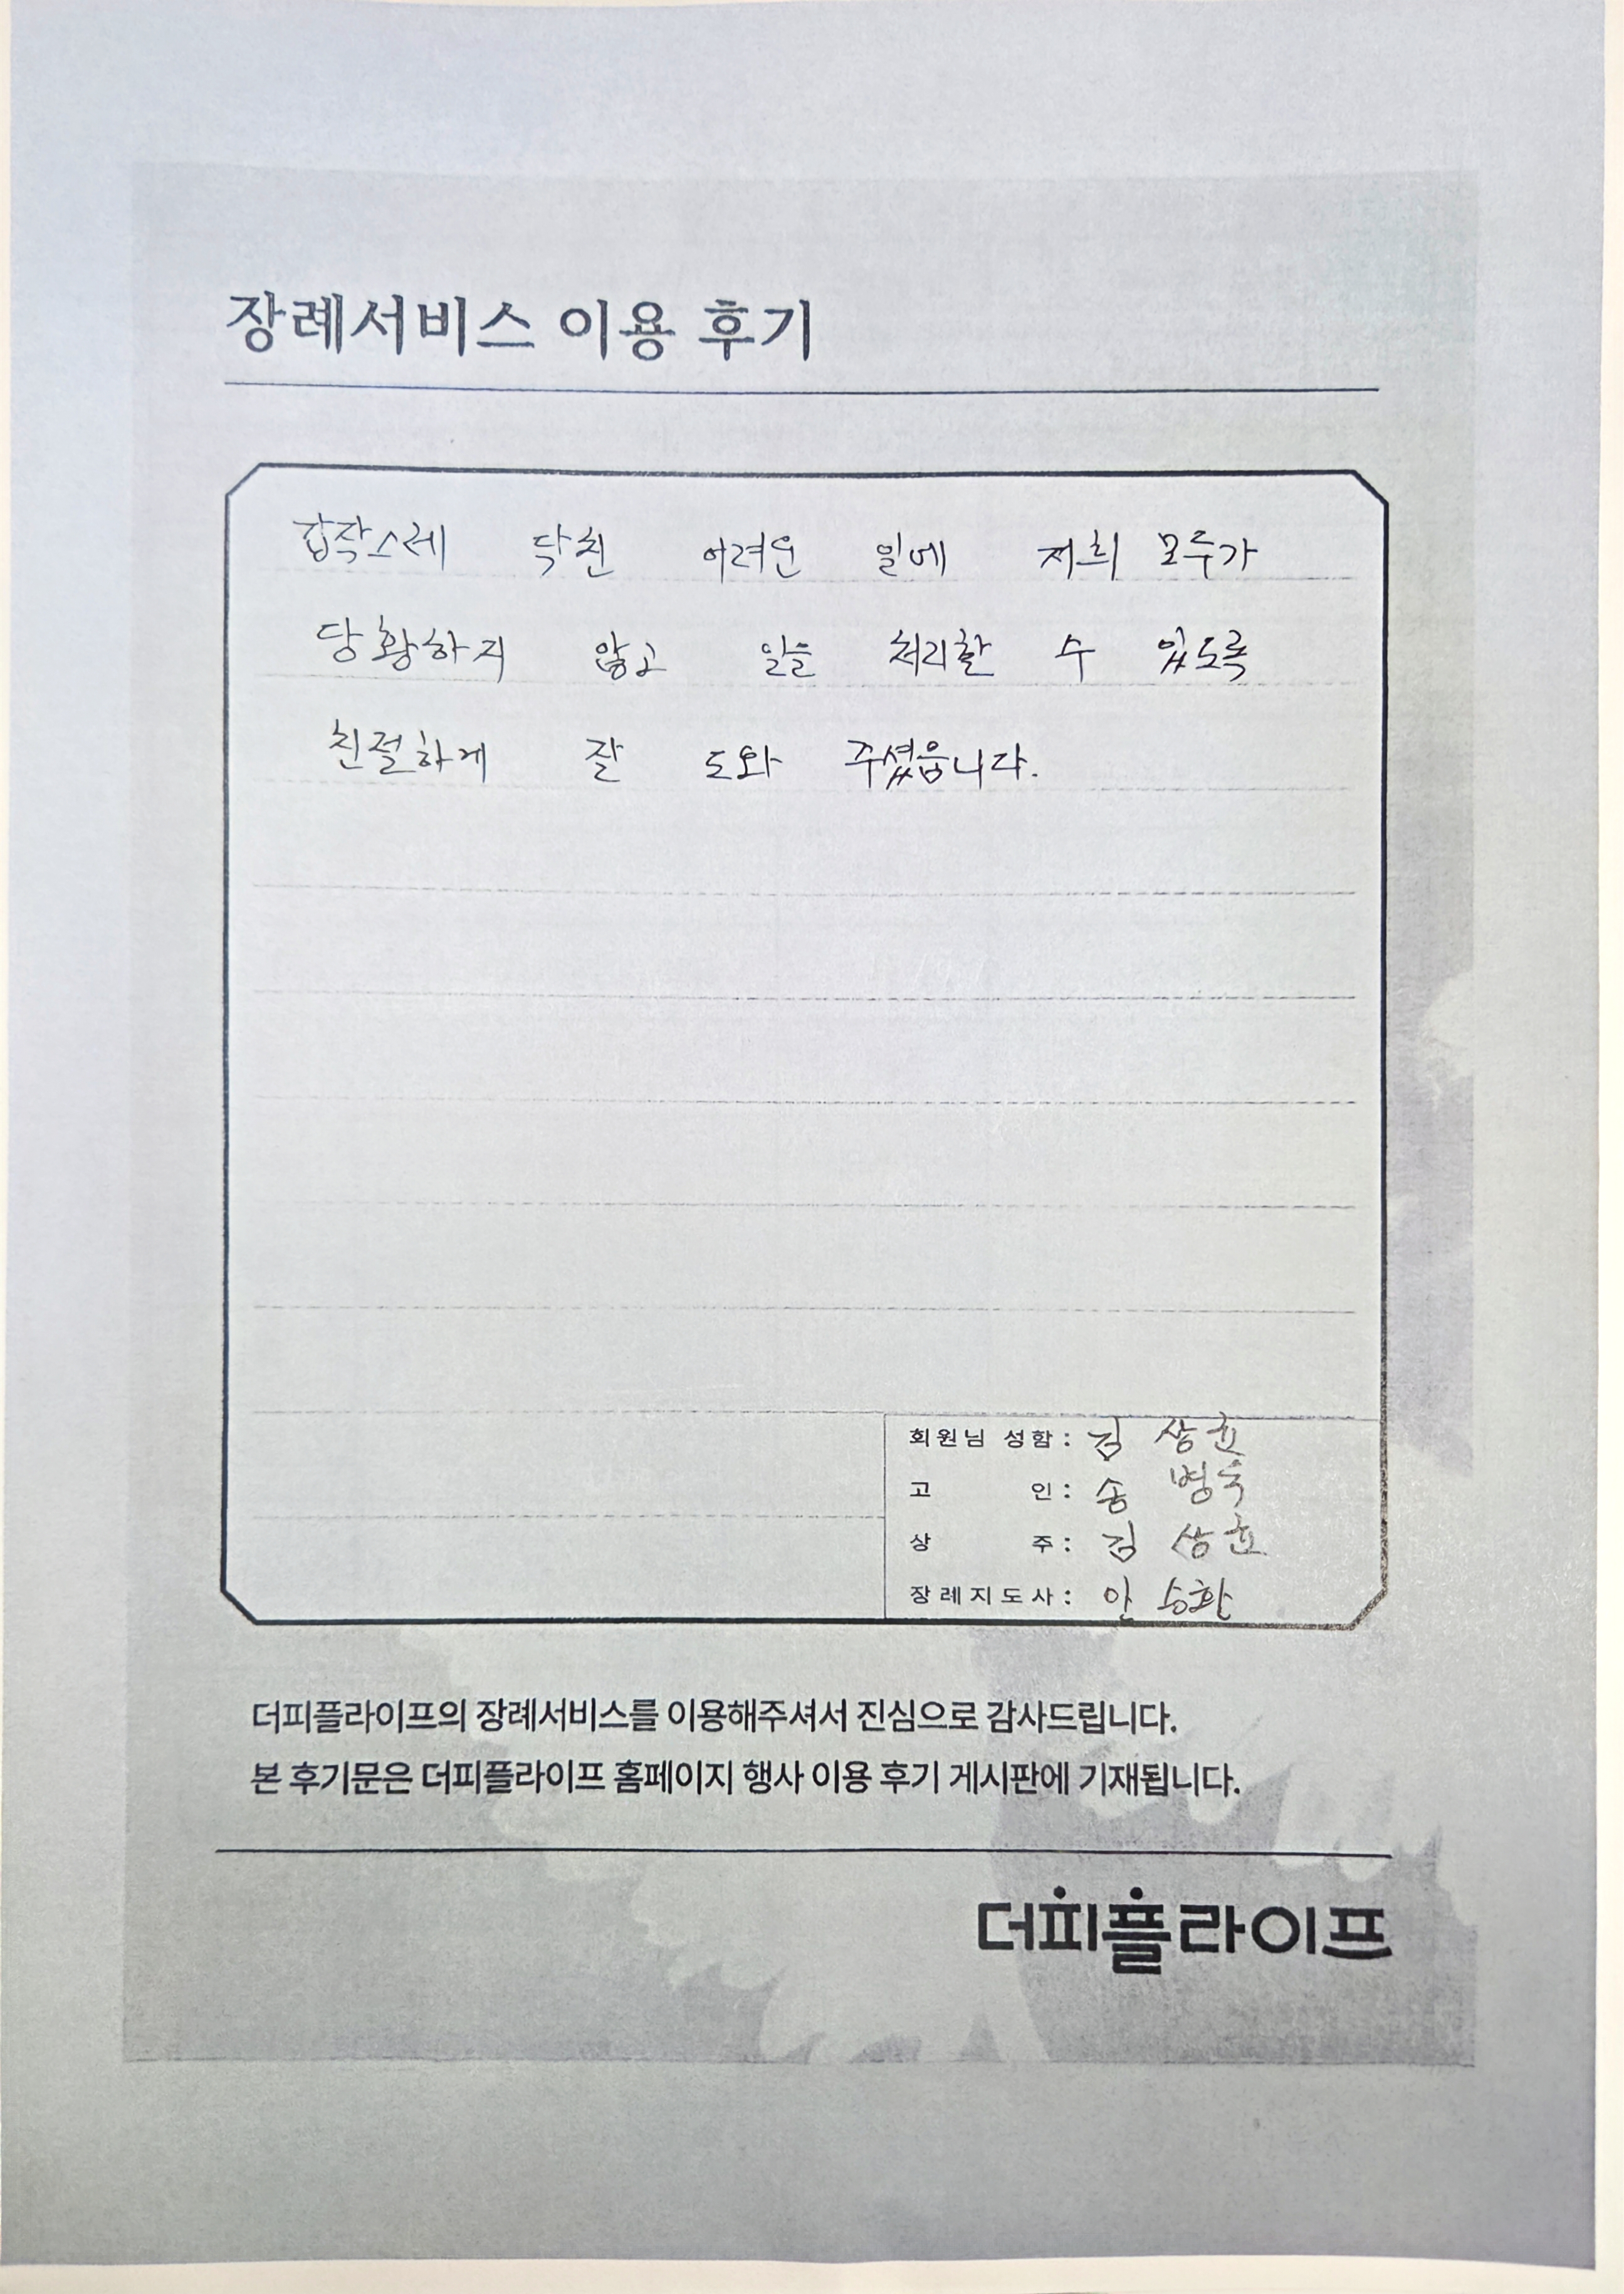 장례서비스 이용 후기
갑작스레 닥친 어려운 일에 저희 모두가
당황하지 않고 일을 처리할 수 있도록
친절하게 잘 도와 주셨읍니다.
회원님 성함: 김 상윤
고 인: 송 병욱
상 주: 김 상윤
장례지도사: 안 승환
더피플라이프의 장례서비스를 이용해주셔서 진심으로 감사드립니다.
본 후기문은 더피플라이프 홈페이지 행사 이용 후기 게시판에 기재됩니다.
더피플라이프